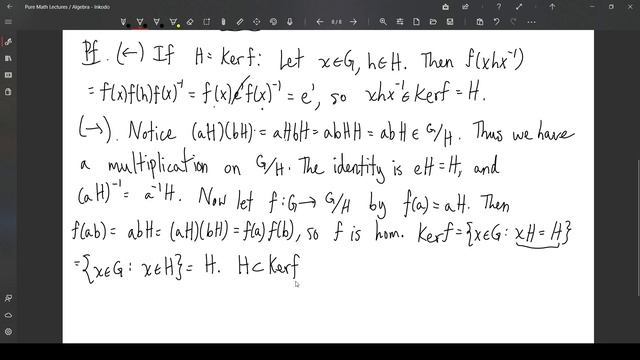 Pure Math Lectures / Algebra - Inkodo
8/8
Pf. (←) If H = Kerf: Let x∈G, h∈H. Then f(xhx⁻¹)
= f(x)f(h)f(x)⁻¹ = f(x)e'f(x)⁻¹ = e', so xhx⁻¹∈Kerf = H.
(→). Notice (aH)(bH) = aHbH = abHH = abH ∈ G/H. Thus we have
a multiplication on G/H. The identity is eH = H, and
(aH)⁻¹ = a⁻¹H. Now let f: G → G/H by f(a) = aH. Then
f(ab) = abH = (aH)(bH) = f(a)f(b), so f is hom. Kerf = {x∈G: xH = H}
= {x∈G: x∈H} = H. H⊂Kerf